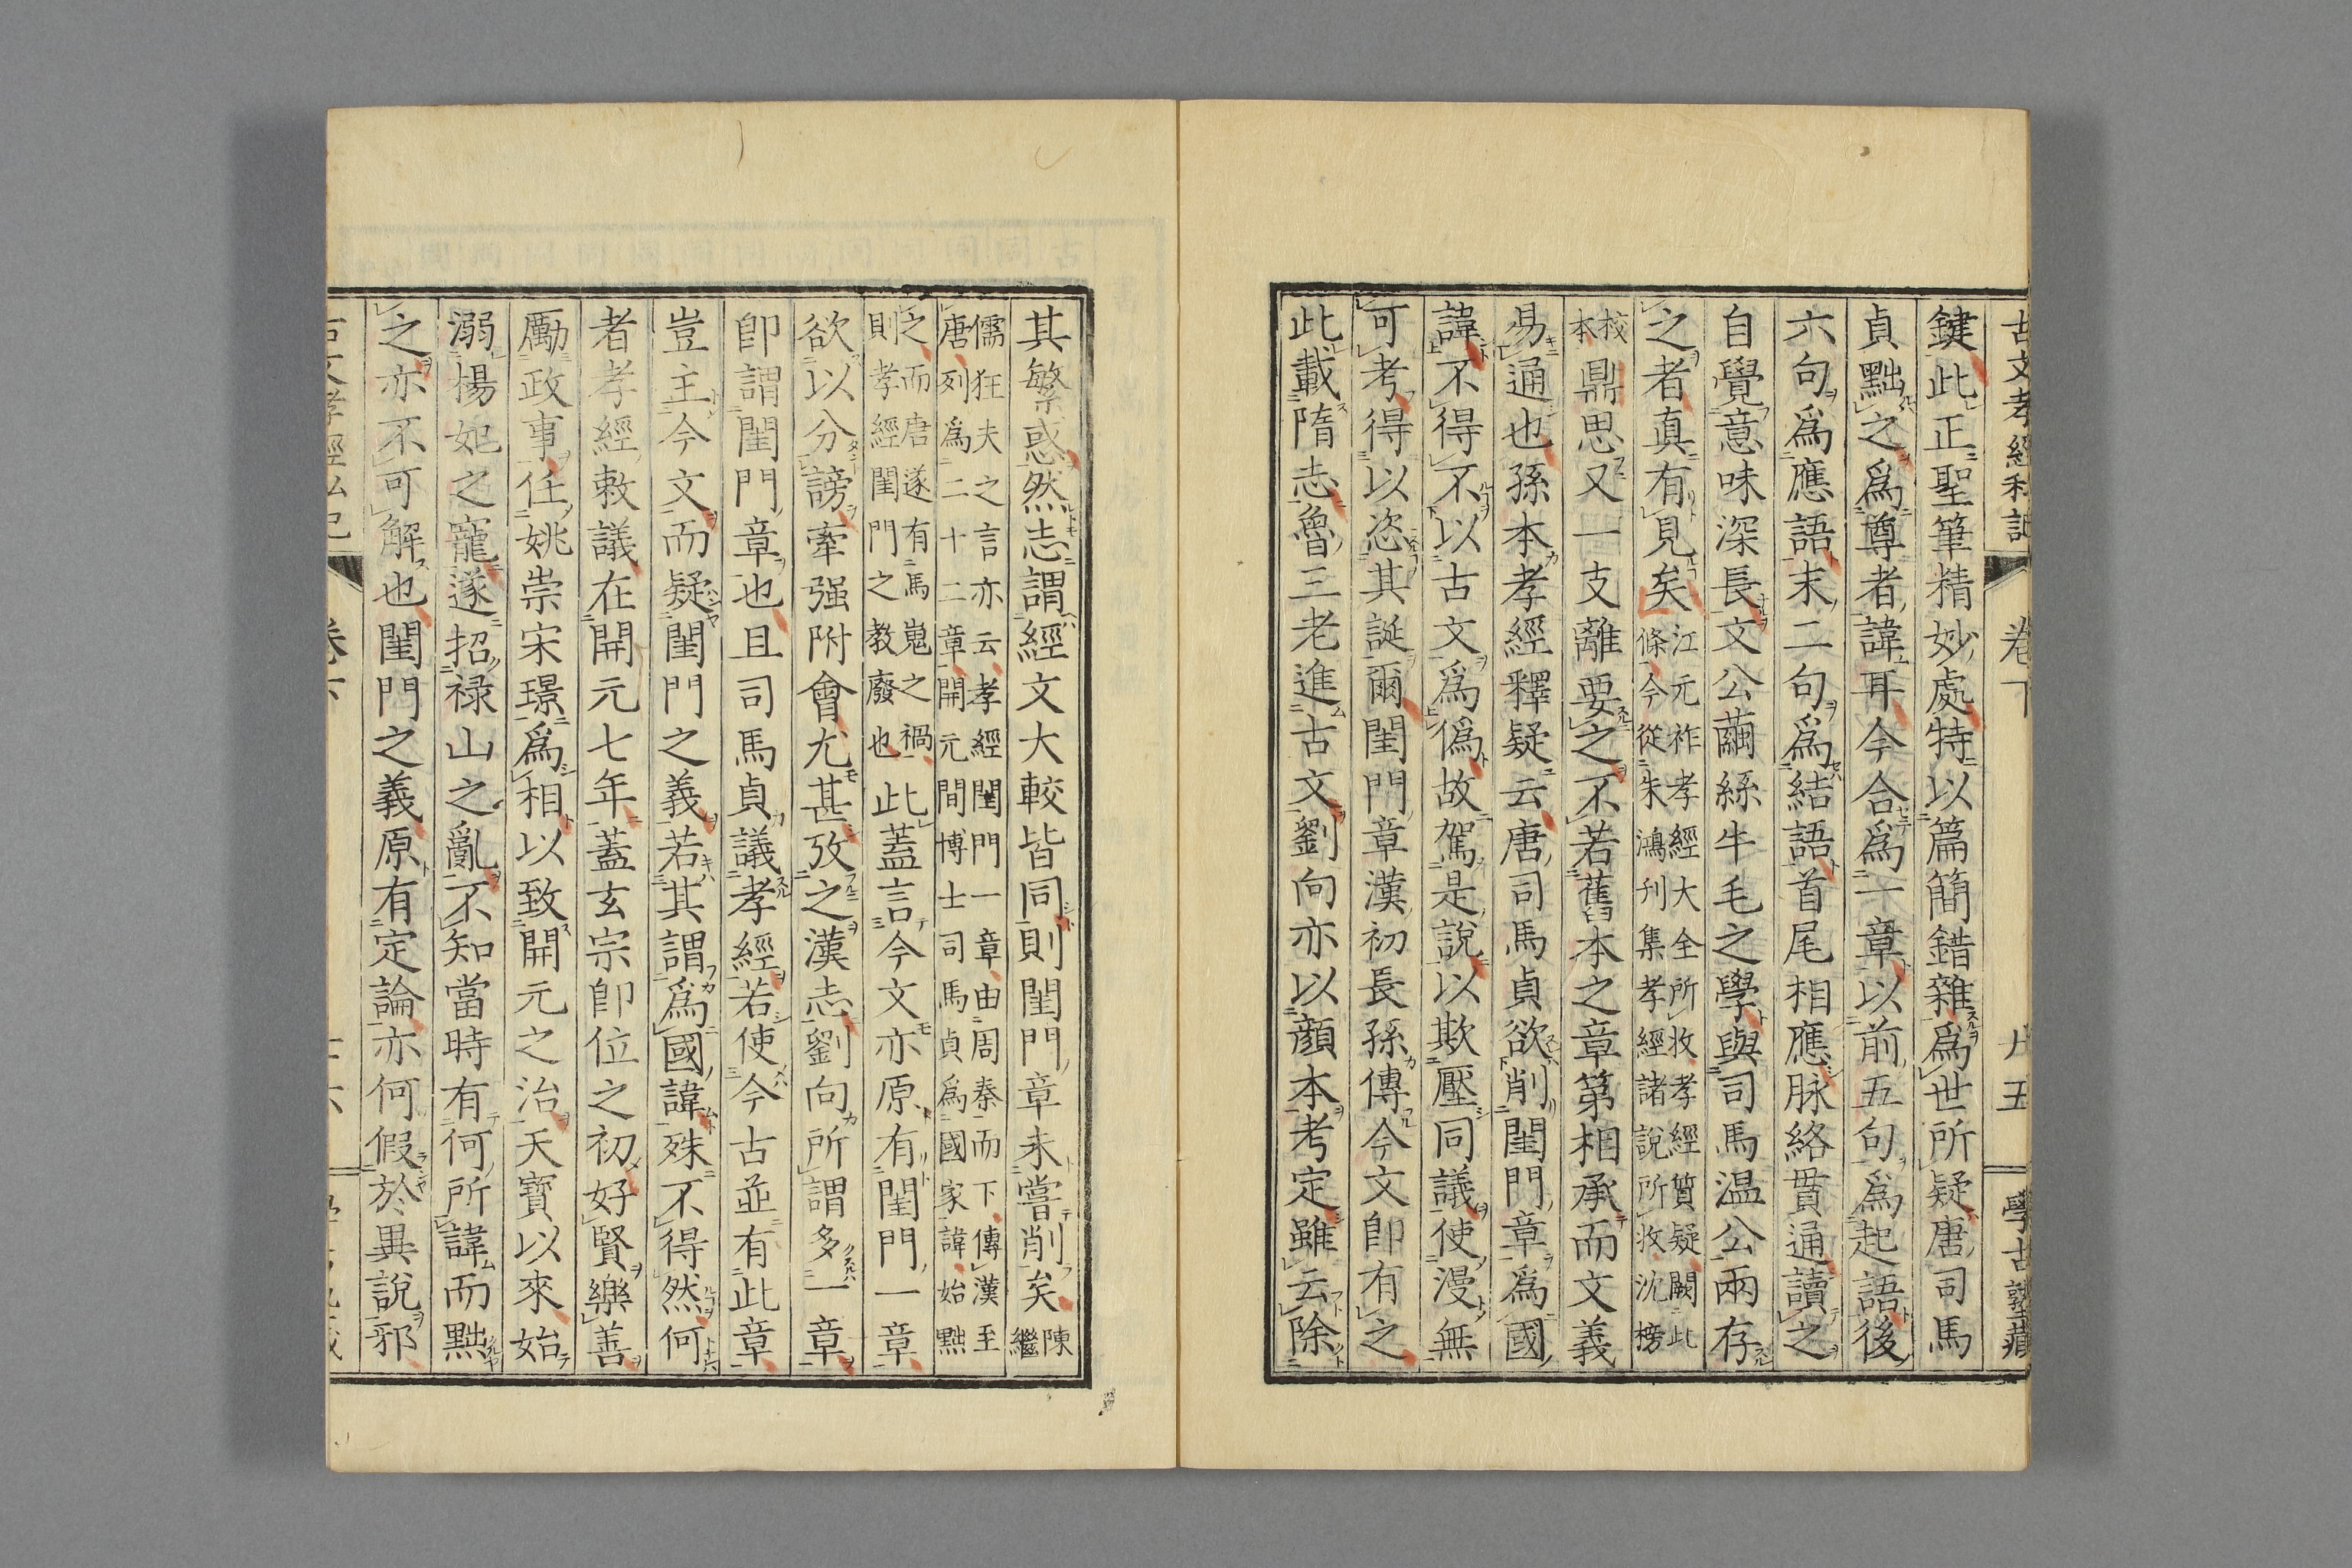 鍵此正聖筆精妙處特以篇簡錯雜爲世所疑唐司馬
貞黜之爲尊者諱耳今合爲一章以前五句爲起語後
六句爲應語末二句爲結語首尾相應脉絡貫通讀之
自覺意味深長文公繭絲牛毛之學與司馬温公兩存
之者真有見矣江元祚孝經大全所收孝經質疑闕此
條今從朱鴻刊集孝經諸說所收沈榜
校本鼎思又一支離要之不若舊本之章第相承而文義
易通也孫本孝經釋疑云唐司馬貞欲削閨門章爲國
諱不得不以古文爲僞故駕是說以欺壓同議使漫無
可考得以恣其誕爾閨門章漢初長孫傳今文卽有之
此載隋志魯三老進古文劉向亦以顔本考定雖云除
其繁惑然志謂經文大較皆同則閨門章未嘗削矣陳繼
儒狂夫之言亦云孝經閨門一章由周秦而下傳漢至
唐列爲二十二章開元間博士司馬貞爲國家諱始黜
之而唐遂有馬嵬之禍
則孝經閨門之教廢也此蓋言今文亦原有閨門一章
欲以分謗牽强附會尤甚攷之漢志劉向所謂多一章
卽謂閨門章也且司馬貞議孝經若使今古並有此章
豈主今文而疑閨門之義若其謂爲國諱殊不得然何
者孝經敕議在開元七年蓋玄宗卽位之初好賢樂善
勵政事任姚崇宋璟爲相以致開元之治天寶以來始
溺楊妃之寵遂招禄山之亂不知當時有何所諱而黜
之亦不可解也閨門之義原有定論亦何假於異說邪